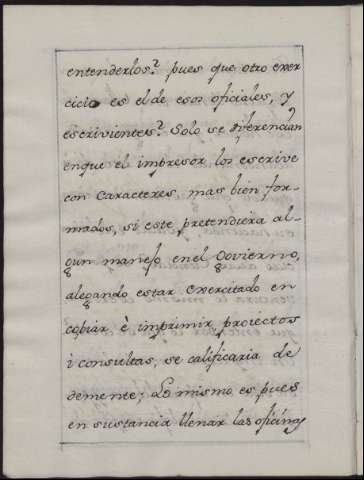 entenderlos? pues que otro exer
cicio es el de esos oficiales, y
escrivientes? Solo se diferencian
enque el impresor los escrive
con caracteres mas bien for-
mados, si este pretendiera al-
gun manejo enel Govierno,
alegando estar exercitado en
copiar, è imprimir proiectos
i consultas, se calificaria de
demente; Lo mismo es pues
en sustancia llenar las oficinas